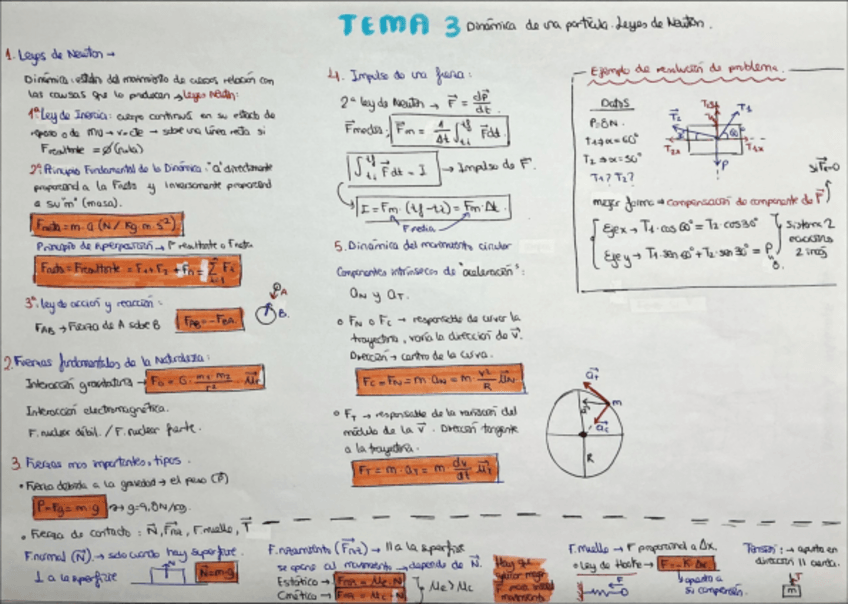 TEMA 3 Dinámica de una partícula. Leyes de Newton.
1. Leyes de Newton →
Dinámica: estudio del movimiento de cuerpos relación con
las causas que lo producen → leyes Newton:
1ª Ley de Inercia: cuerpo continua en su estado de
reposo o de mu → v=cte → sobre una línea recta si
Fresultante = Ø (nula)
2ª Principio Fundamental de la Dinámica: "a" directamente
proporcional a la Fneta y inversamente proporcional
a su "m" (masa).
Fneta = m·a (N / Kg m·s²)
Principio de superposición → Fresultante o Fneta
Fneta = Fresultante = F1 + F2 + Fn = Σ Fi
3ª Ley de acción y reacción:
FAB → Fuerza de A sobre B FAB = -FBA
A
B.
2. Fuerzas fundamentales de la Naturaleza:
Interacción gravitatoria → FG = G · m1·m2 / r² · ur
Interacción electromagnética.
F. nuclear débil. / F. nuclear fuerte.
3. Fuerzas mas importantes, tipos.
• Fuerza debida a la gravedad → el peso (P)
P = Fg = m·g → g = 9,8 N/kg.
• Fuerza de contacto: N, Froz, F.muelle, T
F.normal (N) → solo cuando hay superficie.
⊥ a la superficie N N = m·g
4. Impulso de una fuerza:
2ª ley de Newton → F = dp/dt
Fmedia: Fm = 1/Δt ∫ti tf F dt.
∫ti tf F dt = I → Impulso de F.
I = Fm · (tf - ti) = Fm · Δt.
F media
5. Dinámica del movimiento circular
Componentes intrínsecas de "aceleración":
aN y aT.
o FN o FC → responsable de curvar la
trayectoria, varía la dirección de v.
Dirección → centro de la curva.
FC = FN = m·aN = m · v²/R uN
o FT → responsable de la variación del
módulo de la v. Dirección tangente
a la trayectoria.
FT = m·aT = m · dv/dt uT
aT
m
aC
R
Ejemplo de resolución de problema.
DATOS
P=8N.
T1 → α = 60°
T2 → α = 30°
T1? T2?
T2
T1
T2x
T1x
P
si F=0
mejor forma → compensación de componente de F
Eje x → T1·cos 60° = T2·cos 30°
Eje y → T1·sen 60° + T2·sen 30° = P
8.
Sistema 2
ecuaciones
2 incóg
F.rozamiento (Froz) → // a la superficie
se opone al movimiento → depende de N.
Estático → Froz = μe·N
Cinético → Froz = μc·N
μe > μc
Hay que
F.muelle → F proporcional a Δx.
o Ley de Hooke → F = -K·Δx
F
opuesta a
su compresión.
Tensión: → apunta en
dirección // cuerda.
T
m